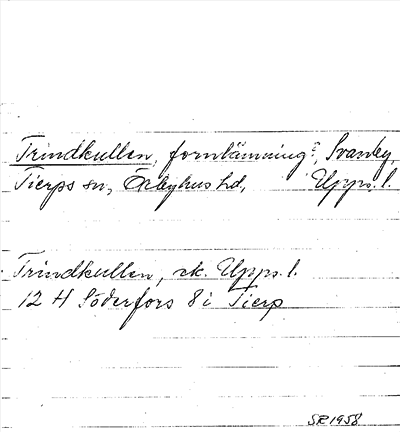 Trindkullen, fornlämning?, Svanby,
Tierps sn, Örbyhus hd, Upps. l.
Trindkullen, ek. Upps. l.
12 H Söderfors 8 i Tierp
SR 1958